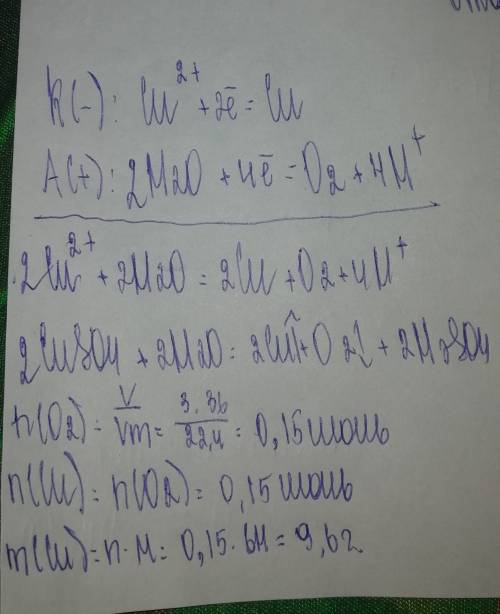 K(-): Cu²⁺ + 2ē = Cu
A(+): 2H2O + 4ē = O2 + 4H⁺
2Cu²⁺ + 2H2O = 2Cu + O2 + 4H⁺
2CuSO4 + 2H2O = 2Cu + O2↑ + 2H2SO4
n(O2) = V/Vm = 3.36/22,4 = 0,15 моль
n(Cu) = n(O2) = 0,15 моль
m(Cu) = n·M = 0,15·64 = 9,6г